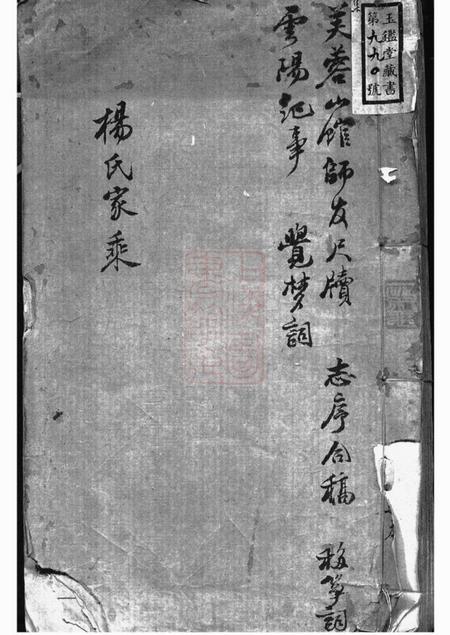 玉鑑堂藏書
第九九〇號
芙蓉山館師友尺牘 志序合稿 移箏詞
雲陽紀事 覺梦詞
楊氏家乘